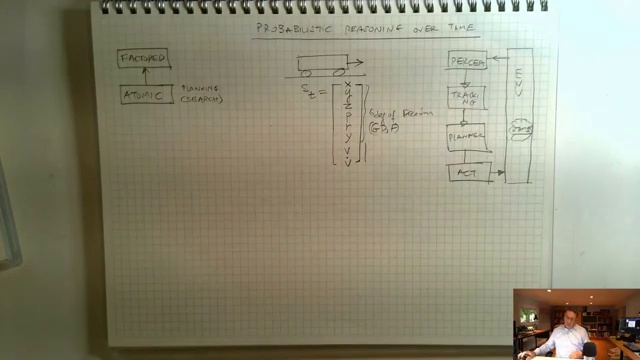 PROBABILISTIC REASONING OVER TIME
FACTORED
ATOMIC
PLANNING
(SEARCH)
S_t =
x
y
z
p
r
y
v
v̇
PERCEP
TRACK
ING
PLANNER
ACT
ENV